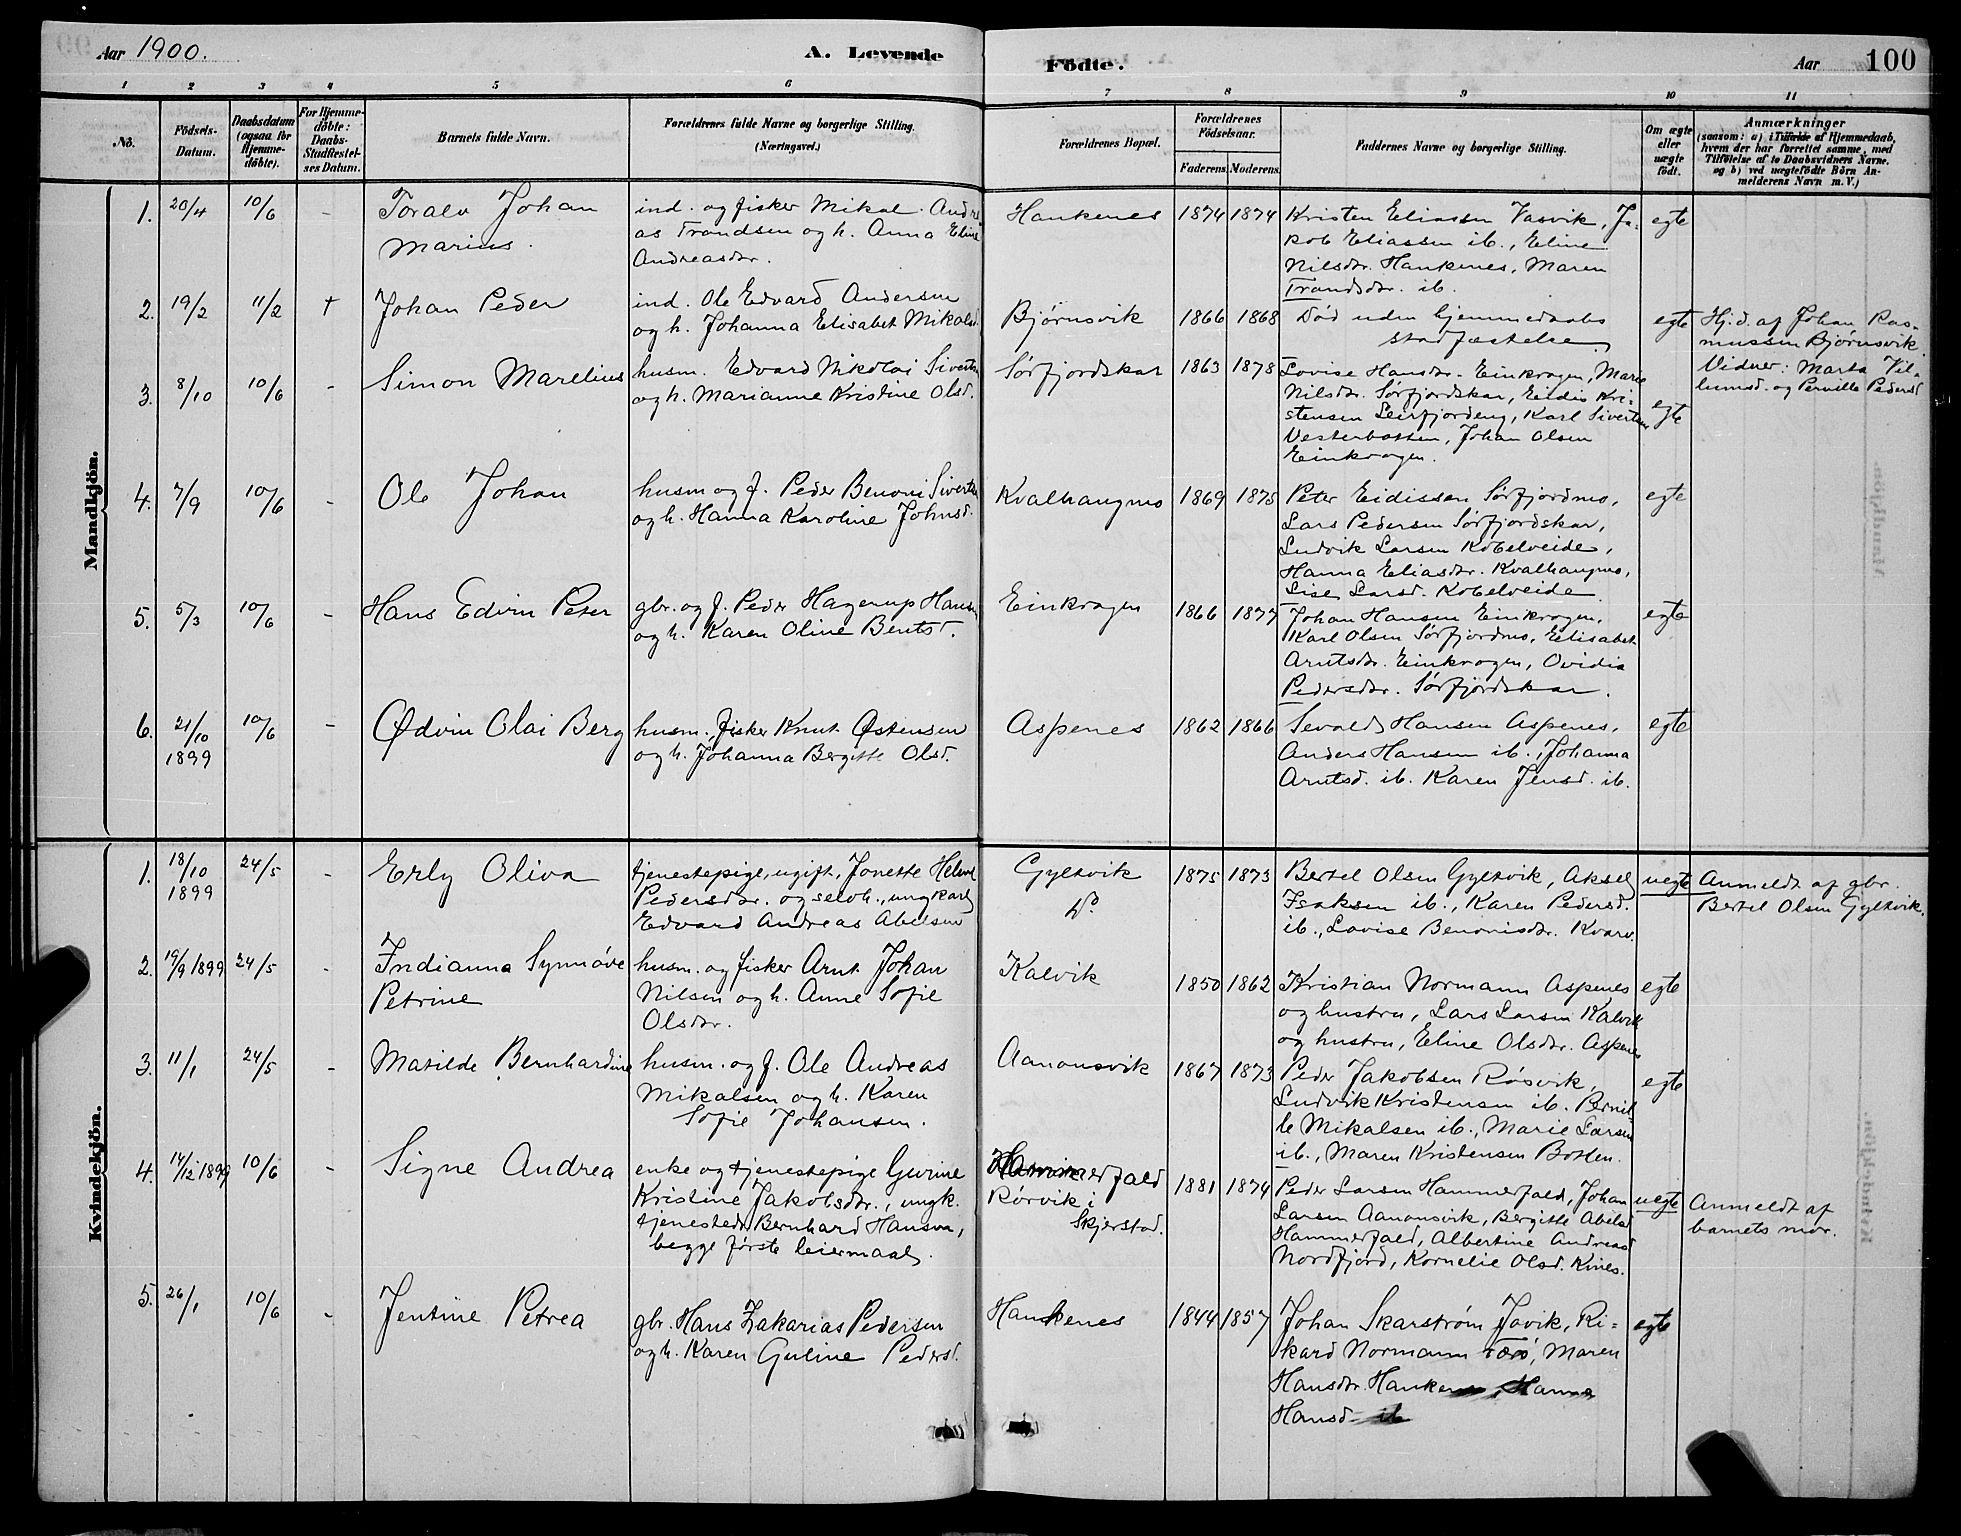 Aar 1900. A. Levende Födte. Aar 100
1 2 3 4 5 6 7 8 9 10 11
No. Födsels-Datum. Daabsdatum (ogsaa for Hjemme-döbte). For Hjemme-döbte: Daabs-Stadfæstel-ses Datum. Barnets fulde Navn. Forældrenes fulde Navne og borgerlige Stilling. (Næringsvei.) Forældrenes Bopæl. Forældrenes Födselsaar. Faderens. Moderens. Faddernes Navne og borgerlige Stilling. Om ægte eller uægte födt. Anmærkninger (saasom: a) i Tilfælde af Hjemmedaab, hvem der har forrettet samme, med Tilföielse af to Daabsvidners Navne. og b) ved uægtefödte Börn An-melderens Navn m. V.)
Mandkjön.
1. 20/4 10/6 - Toralv Johan
Marius.
ind. og fisker Mikal Andre
as Trondsen og h. Anna Eline
Andreasdr.
Hankenes 1874 1874
Kristen Eliassen Vasvik, Ja-
kob Eliassen ib., Eline
Nilsdr. Hankenes, Maren
Trondsdr. ib.
egte
2. 19/2 11/2 † Johan Peder
ind. Ole Edvard Andersen
og h. Johanna Elisabet Mikalsd.
Bjørnsvik 1866 1868
Død uden hjemmedaabs
stadfæstelse
egte
Hj.d. af Johan Ras-
mussen Bjørnsvik
Vidner: Marta Vil-
lumsd. og Pernille Pedersd
3. 8/10 10/6 - Simon Marelius
husm. Edvard Nikolai Sivertsen
og h. Marianne Kristine Olsd.
Sørfjordskar 1863 1878
Lovise Hansdr. Einkrogen, Marie
Nilsdr. Sørfjordskar, Eidis Kri-
stensen Leirfjordeng, Karl Sivertsen
Vesterbotten, Johan Olsen
Einkrogen.
egte
4. 7/9 10/6 - Ole Johan
husm og f. Peder Benoni Sivertsen
og h. Hanna Karoline Johnsd.
Kvalhaugmo 1869 1875
Peter Eidissen Sørfjordmo,
Lars Pedersen Sørfjordskar,
Ludvik Larsen Kobelveide,
Hanna Eliasdr. Kvalhaugmo,
Lise Larsd. Kobelveide.
egte
5. 5/3 10/6 - Hans Edvin Peter
gbr. og f. Peder Hagerup Hansen
og h. Karen Oline Bentsd.
Einkrogen 1866 1877
Johan Hansen Einkrogen,
Karl Olsen Sørfjordmo, Elisabet
Arntsdr. Einkrogen, Ovidia
Pedersdr. Sørfjordskar.
egte
6. 21/10 1899 10/6 - Ødvin Olai Berg
husm. fisker Knut Østensen
og h. Johanna Bergitte Olsd.
Aspenes 1862 1866
Sevald Hansen Aspenes,
Anders Hansen ib., Johanna
Arntsd. ib. Karen Jensd. ib.
egte
Kvindekjön.
1. 18/10 1899 24/5 - Erly Oliva
tjenestepige, ugift, Jonette Helene
Pedersdr. og selvh., ungkarl
Edvard Andreas Abelsen
Gyltvik
Do.
1875 1873
Bertel Olsen Gyltvik, Aksel
Isaksen ib., Karen Pedersd.
ib., Lovise Benonisdr. Kvarv.
uegte
Anmeldt af gbr.
Bertel Olsen Gyltvik.
2. 19/9 1899 24/5 - Indianna Synnøve
Petrine
husm. og fisker Arnt Johan
Nilsen og h. Anne Sofie
Olsdr.
Kalvik 1850 1862
Kristian Normann Aspenes
og hustru, Lars Larsen Kalvik
og hustru, Eline Olsdr. Aspenes
egte
3. 11/1 24/5 - Matilde Bernhardine
husm. og f. Ole Andreas
Mikalsen og h. Karen
Sofie Johansen.
Aanonsvik 1867 1873
Peder Jakobsen Røsvik,
Ludvik Kristensen ib. Pernil-
le Mikalsen ib., Marie Larsen
ib., Maren Kristensen Botten.
egte
4. 14/12 1899 10/6 - Signe Andrea
enke og tjenestepige Gurine
Kristine Jakobsdr., ungk.
tjenestedr. Bernhard Hansen,
begge første leiermaal.
Hammerfald
Rørvik i
Skjerstad.
1881 1874
Peder Larsen Hammerfald, Johan
Larsen Aanonsvik, Bergitte Abelsd
Hammerfald, Albertine Andreasd
Nordfjord, Kornelie Olsd. Kines.
uegte
Anmeldt af
barnets mor.
5. 26/1 10/6 - Jentine Petrea
gbr. Hans Zakarias Pedersen
og h. Karen Guline Pedersd.
Hankenes 1844 1857
Johan Skarstrøm Javik, Ri-
kard Normann Tørö, Maren
Hansdr. Hankenes, Hanna
Hansd ib
egte